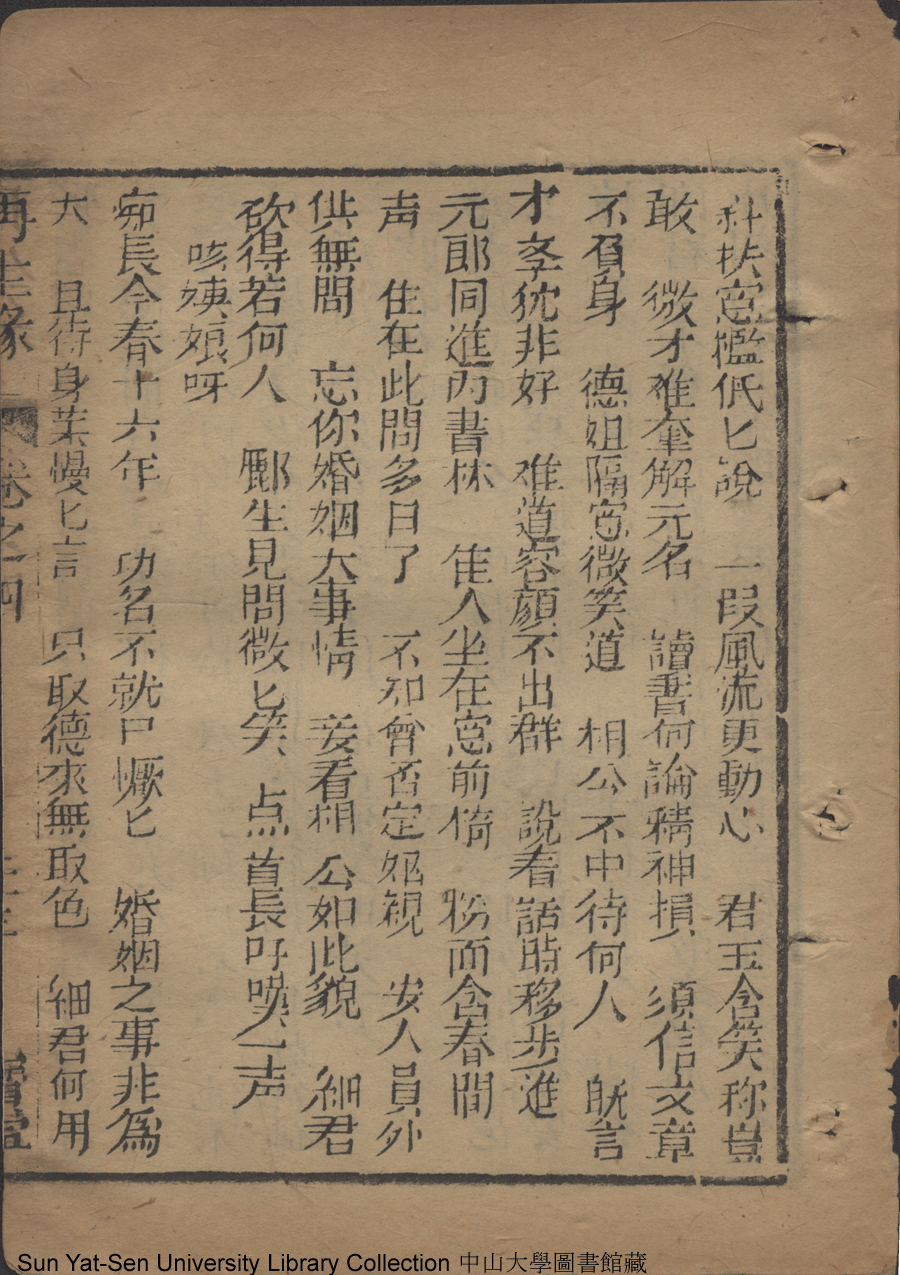 斜扶窓檻低匕說　一段風流更動心　君玉含笑称豈
敢　微才难奎解元名　讀書何論精神損　須信文章
不負身　德姐隔窓微笑道　相公不中待何人　既言
才李犹非好　难道容顔不出群　說着話時移步進
元郎同進内書林　佳人坐在窓前倚　粉面含春間
声　住在此間多日了　不知曾否定婚視　安人員外
供無間　忘你婚姻大事情　妾看相公如此貌　細君
欲得若何人　酈生見問微匕笑　点首長吁嘆一声
咳姨娘呀
痴長今春十六年　功名不就尸慨匕　婚姻之事非為
大　且待身荣慢匕言　只取德來無取色　細君何用
再生緣　卷之四　寶
Sun Yat-Sen University Library Collection 中山大學圖書館藏